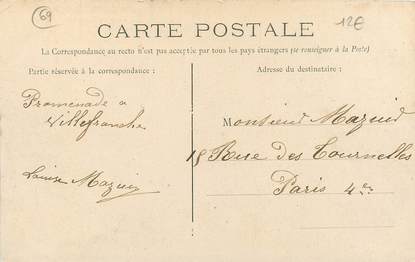 69
12€
CARTE POSTALE
La Correspondance au recto n'est pas acceptée par tous les pays étrangers (se renseigner à la Poste)
Partie réservée à la correspondance :
Adresse du destinataire :
Promenade a
Villefranche
Louise Mazuid
Monsieur Mazuid
18 Rue des Tournelles
Paris 4e